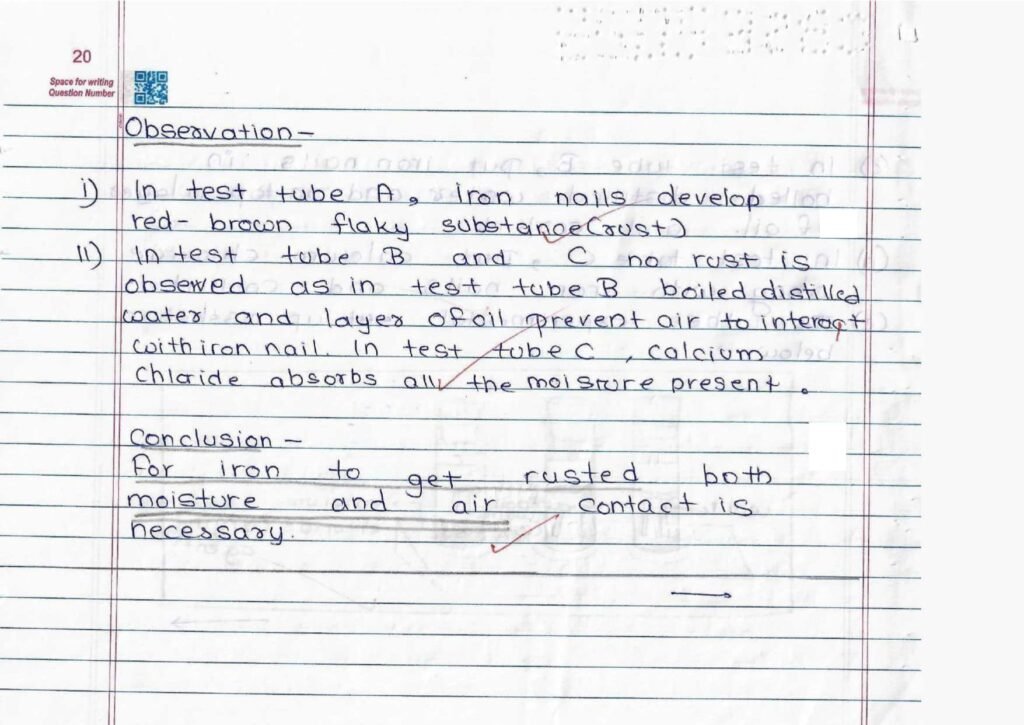 20
Space for writing
Question Number
Observation -
i) In test tube A, iron nails develop
red- brown flaky substance (rust)
II) In test tube B and C no rust is
obsewed as in test tube B boiled distilled
water and layer of oil prevent air to interact
with iron nail. In test tube C, calcium
Chloride absorbs all the moisture present.
Conclusion -
For iron to get rusted both
moisture and air contact is
necessary.